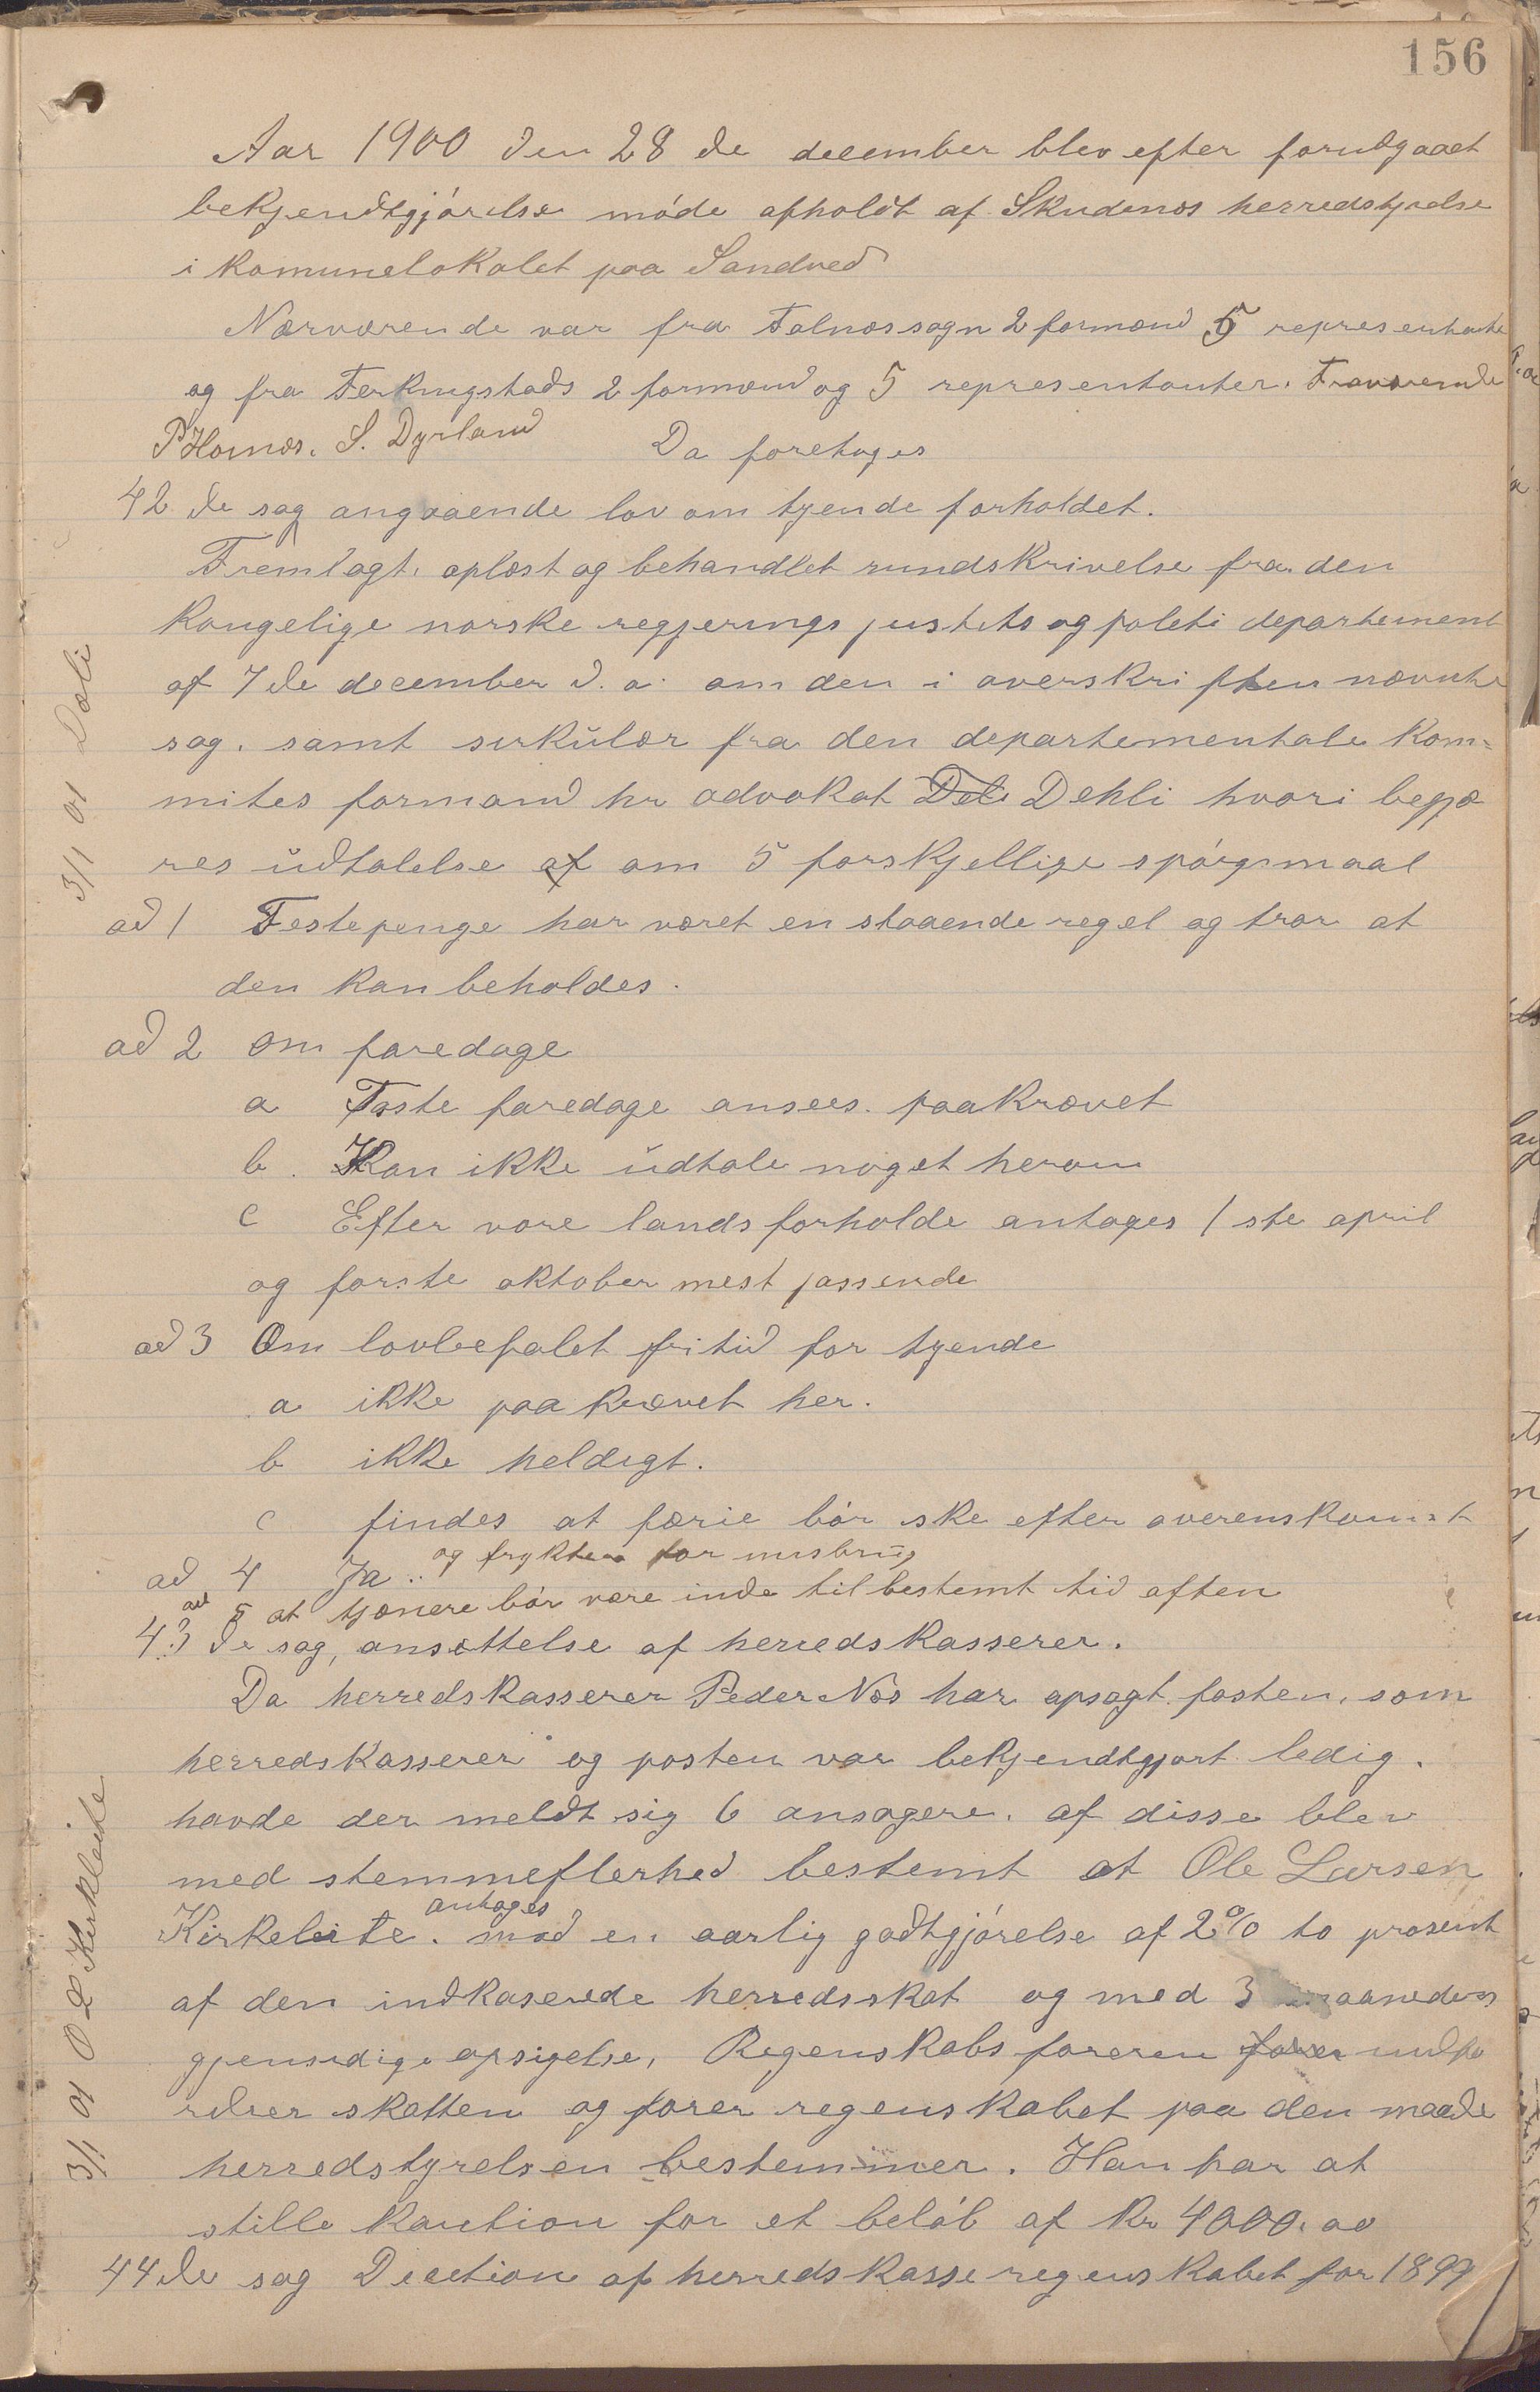 156
Aar 1900 den 28 de december blev efter forudgaaet
bekjendtgjórelse móde afholdt af Skudenæs herredstyrelse
i komunelokalet paa Sandved
Nærværende var fra Falnæs sogn 2 formænd 5 representante
og fra Ferkingstads 2 formænd og 5 representanter. Fraværende
P Homæs. S. Dyrland Da foretoges
42 de sag angaaende lov om tyende forholdet.
Fremlagt, oplæst og behandlet rundskrivelse fra den
kongelige norske regjerings justits og politi departement
af 7 de december d. a. om den i overskriften nævnte
sag. samt sirkulær fra den departementale kom=
mites formand hr advokat Dehli hvori begjæ
res udtalelse af om 5 forskjellige spórgsmaal
ad 1 Festepenge har været en staaende regel og tror at
den kan beholdes.
ad 2 Om faredage
a Faste faredage ansees paakrævet
b. Kan ikke udtale noget herom
c Efter vore lands forholde antages 1 ste april
og første oktober mest passende
ad 3 Om lovbefalet fritid for tyende
a ikke paa krævet her.
b ikke heldigt.
c findes at færie bór ske efter overenskomst
ad 4 Ja .. og frykter for misbrug
ad 5 at tjænere bór være inde til bestemt tid aften
43 de sag, ansættelse af herredskasserer.
Da herredskasserer Peder Næs har opsagt posten, som
herredskasserer og posten var bekjendtgjort ledig.
havde der meldt sig 6 ansøgere. af disse blev
med stemmeflerhed bestemt at Ole Larsen
antages
Kirkeleite. mod en aarlig godtgjórelse af 2% to prosent
af den indkaserede herredsskat og med 3 maaneders
gjensidige opsigelse, Regenskabs føreren fører indfo
rdrer skatten og fører regenskabet paa den maade
herredstyrelsen bestemmer. Han har at
stille kaution for et belób af Kr 4000. oo
44 de sag Decition af herredskasseregenskabet for 1899
3/1 01 Dæli
3/1 01 O L Kirkleite